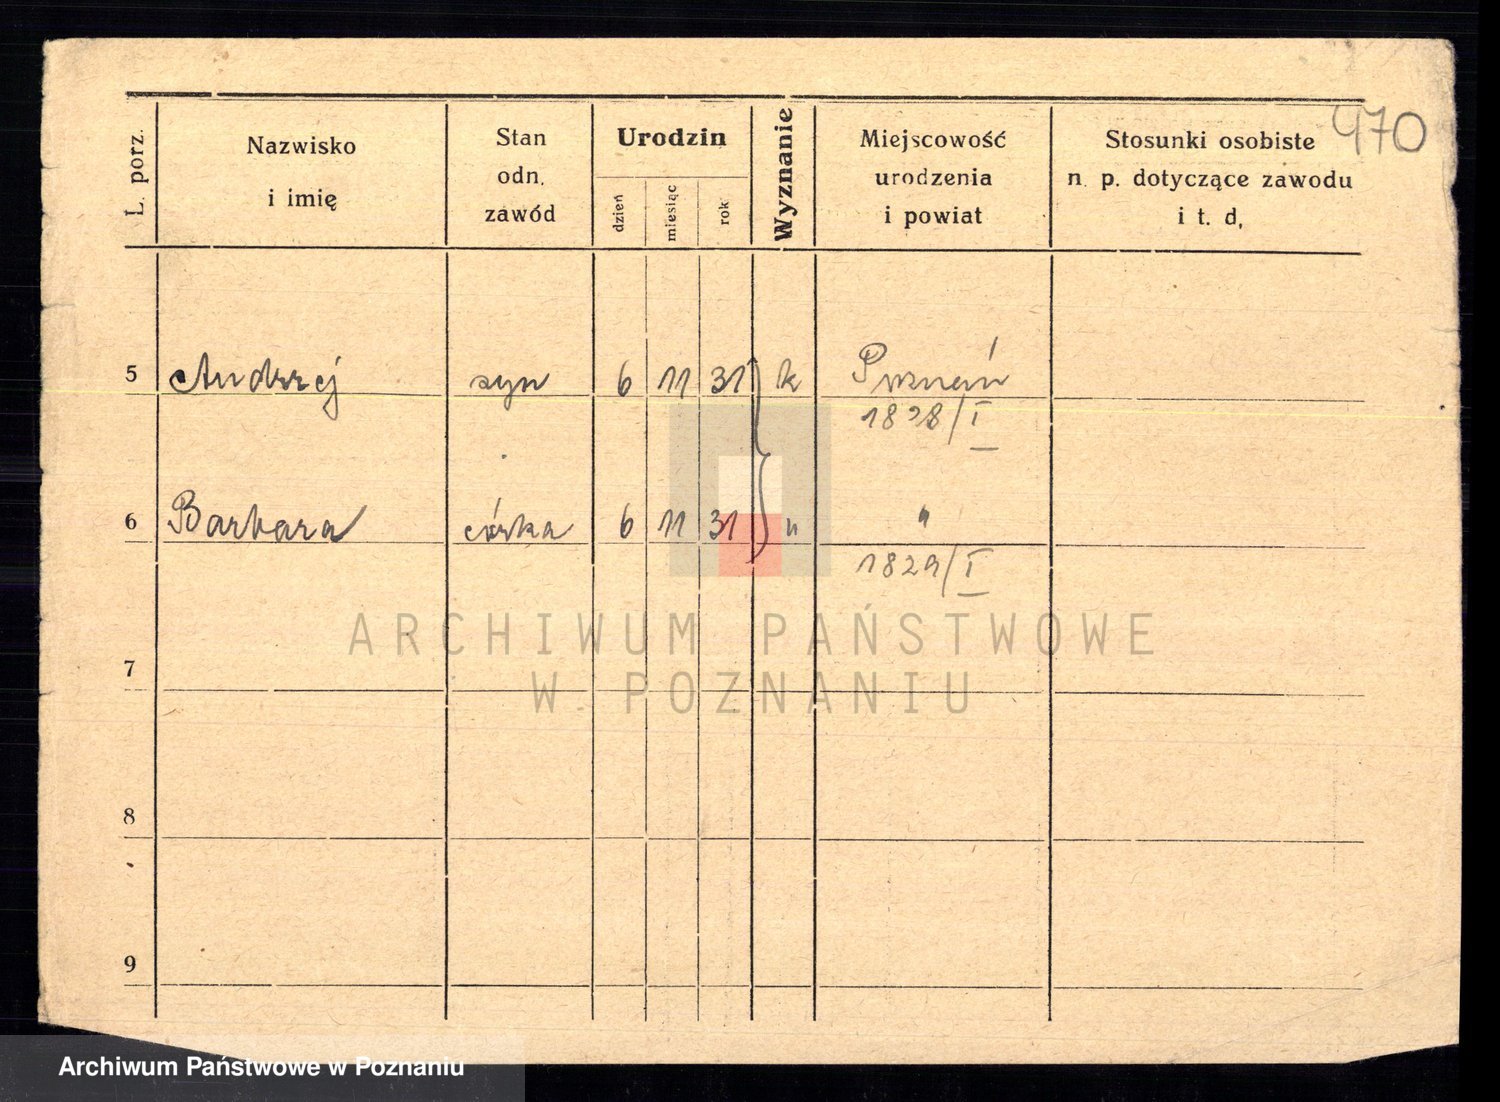 470
L. porz.
Nazwisko
i imię
Stan
odn.
zawód
Urodzin
dzień
miesiąc
rok
Wyznanie
Miejscowość
urodzenia
i powiat
Stosunki osobiste
n. p. dotyczące zawodu
i t. d,
5 Andrzej syn 6 11 31 k Poznań
1828/I
6 Barbara córka 6 11 31 " "
1829/I
ARCHIWUM PAŃSTWOWE
W POZNANIU
7
8
9
Archiwum Państwowe w Poznaniu